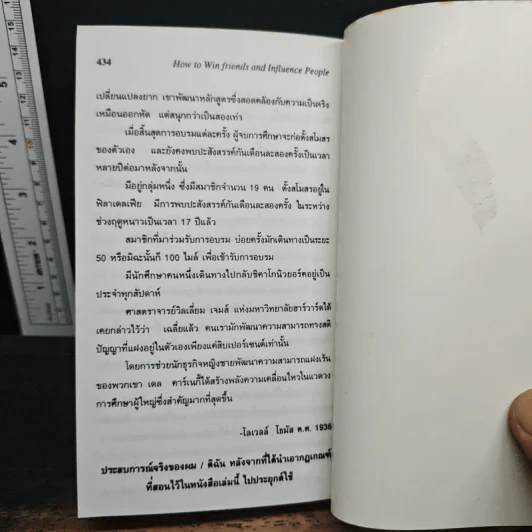 434
How to Win friends and Influence People
เปลี่ยนแปลงยาก เขาพัฒนาหลักสูตรซึ่งสอดคล้องกับความเป็นจริง
เหมือนออกหัด แต่สนุกกว่าเป็นสองเท่า
เมื่อสิ้นสุดการอบรมแต่ละครั้ง ผู้จบการศึกษาจะก่อตั้งสโมสร
ของตัวเอง และยังคงพบปะสังสรรค์กันเดือนละสองครั้งเป็นเวลา
หลายปีต่อมาหลังจากนั้น
มีอยู่กลุ่มหนึ่ง ซึ่งมีสมาชิกจำนวน 19 คน ตั้งสโมสรอยู่ใน
ฟิลาเดลเฟีย มีการพบปะสังสรรค์กันเดือนละสองครั้ง ในระหว่าง
ช่วงฤดูหนาวเป็นเวลา 17 ปีแล้ว
สมาชิกที่มาร่วมรับการอบรม บ่อยครั้งมักเดินทางเป็นระยะ
50 หรือมิฉะนั้นก็ 100 ไมล์ เพื่อเข้ารับการอบรม
มีนักศึกษาคนหนึ่งเดินทางไปกลับชิคาโกนิวยอร์คอยู่เป็น
ประจำทุกสัปดาห์
ศาสตราจารย์วิลเลี่ยม เจมส์ แห่งมหาวิทยาลัยฮาร์วาร์ดได้
เคยกล่าวไว้ว่า เฉลี่ยแล้ว คนเรามักพัฒนาความสามารถทางสติ
ปัญญาที่แฝงอยู่ในตัวเองเพียงแค่สิบเปอร์เซนต์เท่านั้น
โดยการช่วยนักธุรกิจหญิงชายพัฒนาความสามารถแฝงเร้น
ของพวกเขา เดล คาร์เนกี้ได้สร้างพลังความเคลื่อนไหวในแวดวง
การศึกษาผู้ใหญ่ซึ่งสำคัญมากที่สุดขึ้น
-โลเวลล์ โธมัส ค.ศ. 1936
ประสบการณ์จริงของผม / ดิฉัน หลังจากที่ได้นำเอากฎเกณฑ์
ที่สอนไว้ในหนังสือเล่มนี้ ไปประยุกต์ใช้